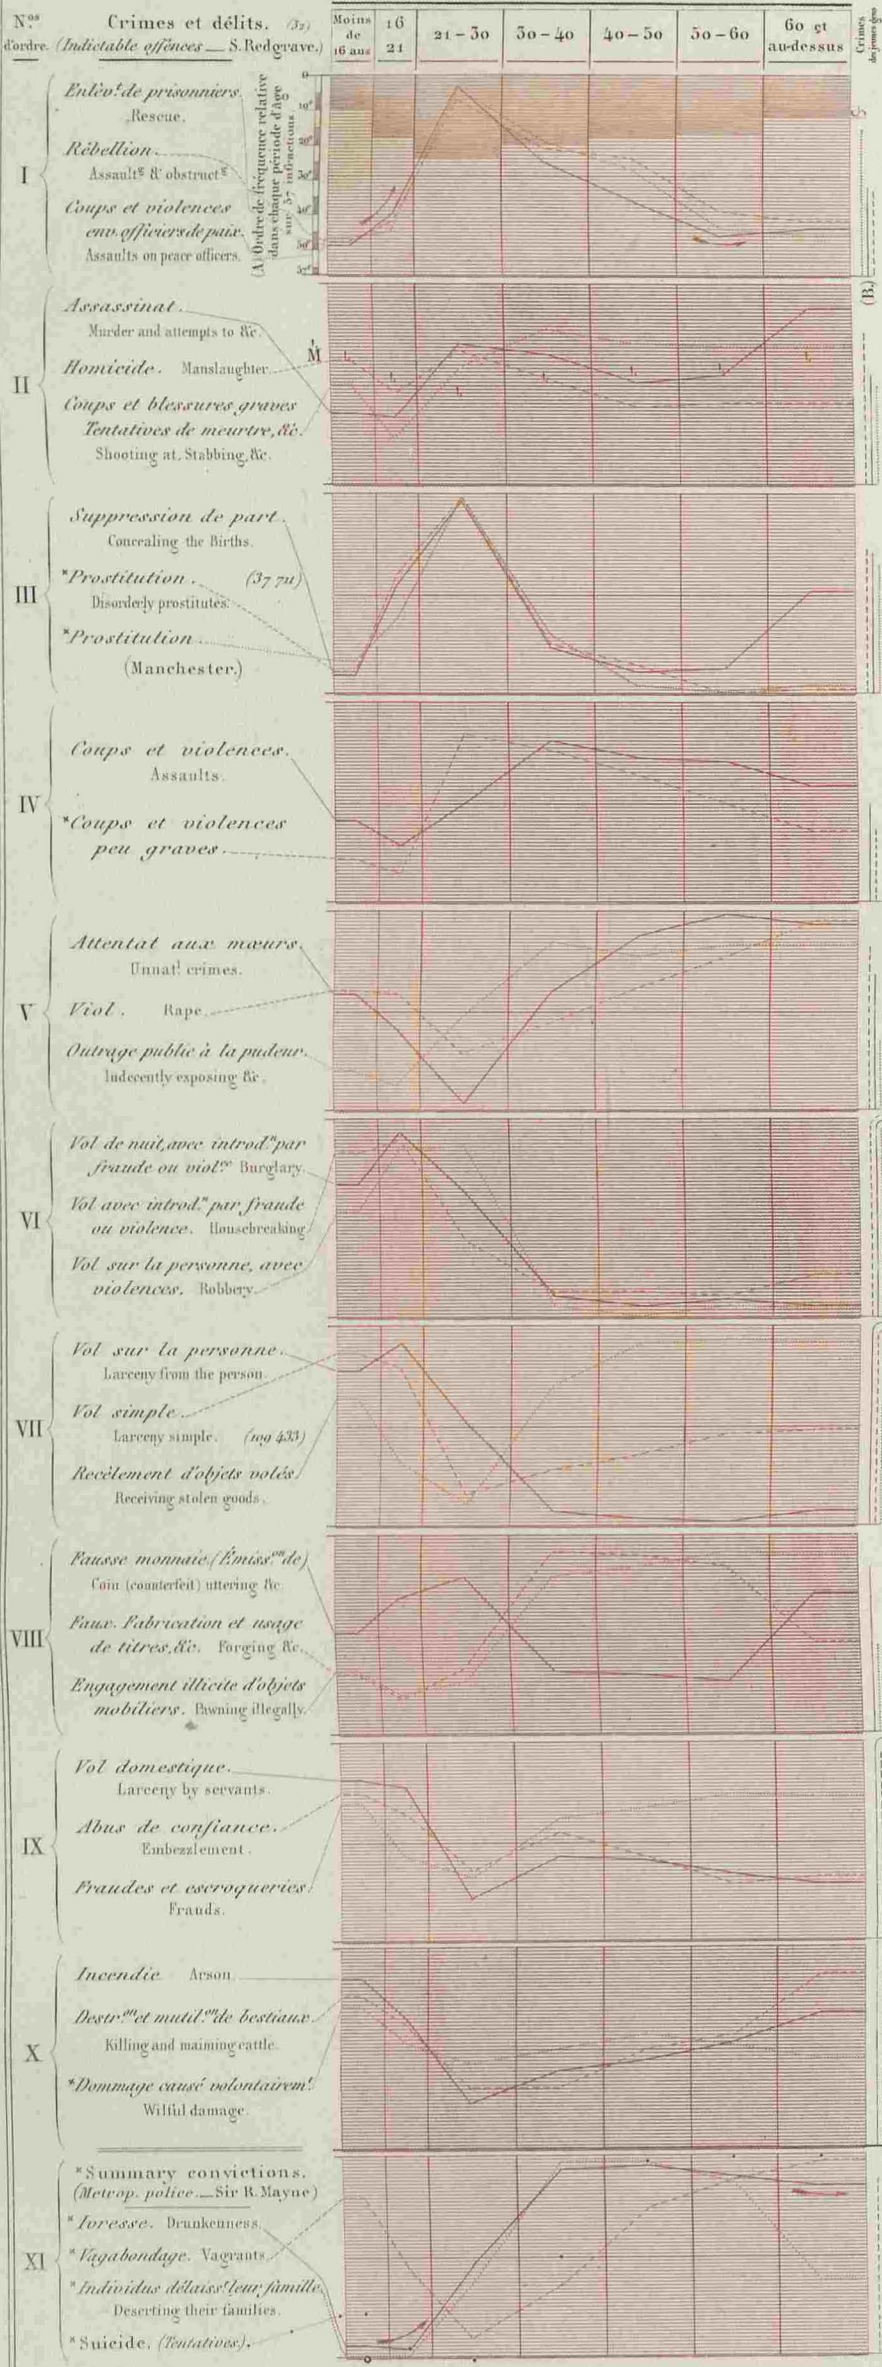 N.os
d'ordre.
Crimes et délits. (32)
(Indictable offences — S. Redgrave.)
Moins
de
16 ans
16
21
21 - 30
30 - 40
40 - 50
50 - 60
60 et
au-dessus
Crimes
(A) Ordre de fréquence relative
dans chaque période d'âge
sur 57 infractions.
0
10e
20e
30e
40e
50e
57e
(B.)
I
Enlèv.t de prisonniers.
Rescue.
Rébellion.
Assaults & obstructs
Coups et violences
env. officiers de paix.
Assaults on peace officers.
II
Assassinat.
Murder and attempts to &c.
Homicide. Manslaughter.
M
Coups et blessures graves
Tentatives de meurtre, &c.
Shooting at, Stabbing, &c.
III
Suppression de part.
Concealing the Births.
*Prostitution. (37 711)
Disorderly prostitutes.
*Prostitution
(Manchester.)
IV
Coups et violences.
Assaults.
*Coups et violences
peu graves.
V
Attentat aux mœurs.
Unnat.l crimes.
Viol. Rape.
Outrage public à la pudeur.
Indecently exposing &c.
VI
Vol de nuit, avec introd.n par
fraude ou viol.ce Burglary.
Vol avec introd.n par fraude
ou violence. Housebreaking
Vol sur la personne, avec
violences. Robbery.
VII
Vol sur la personne.
Larceny from the person.
Vol simple.
Larceny simple. (109 433)
Recèlement d'objets volés
Receiving stolen goods.
VIII
Fausse monnaie. (Émiss.on de)
Coin (counterfeit) uttering &c.
Faux. Fabrication et usage
de titres, &c. Forging &c.
Engagement illicite d'objets
mobiliers. Pawning illegally.
IX
Vol domestique.
Larceny by servants.
Abus de confiance.
Embezzlement.
Fraudes et escroqueries.
Frauds.
X
Incendie Arson
Destr.on et mutil.on de bestiaux.
Killing and maiming cattle.
*Dommage causé volontairem.t
Wilful damage.
XI
*Summary convictions.
(Metrop. police. — Sir R. Mayne)
*Ivresse. Drunkenness.
*Vagabondage. Vagrants.
*Individus délaiss.t leur famille
Deserting their families.
*Suicide. (Tentatives).